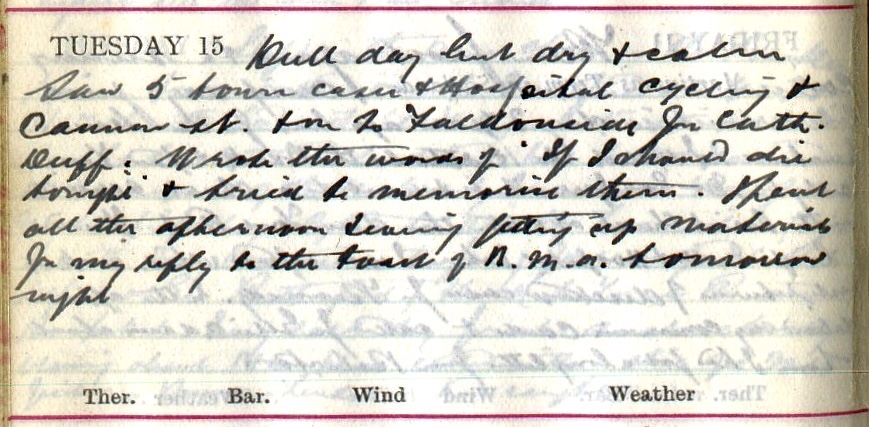 TUESDAY 15 Dull day but dry & calm
Saw 5 town cases & Hospital cycling &
Cannon St. & on to Faldonside for Cath.
Duff. Wrote the words of "If I should die
tonight" & tried to memorise them. Spent
all the afternoon & evening getting up material
for my reply to the toast of B.M.A. tomorrow
night
Ther. Bar. Wind Weather